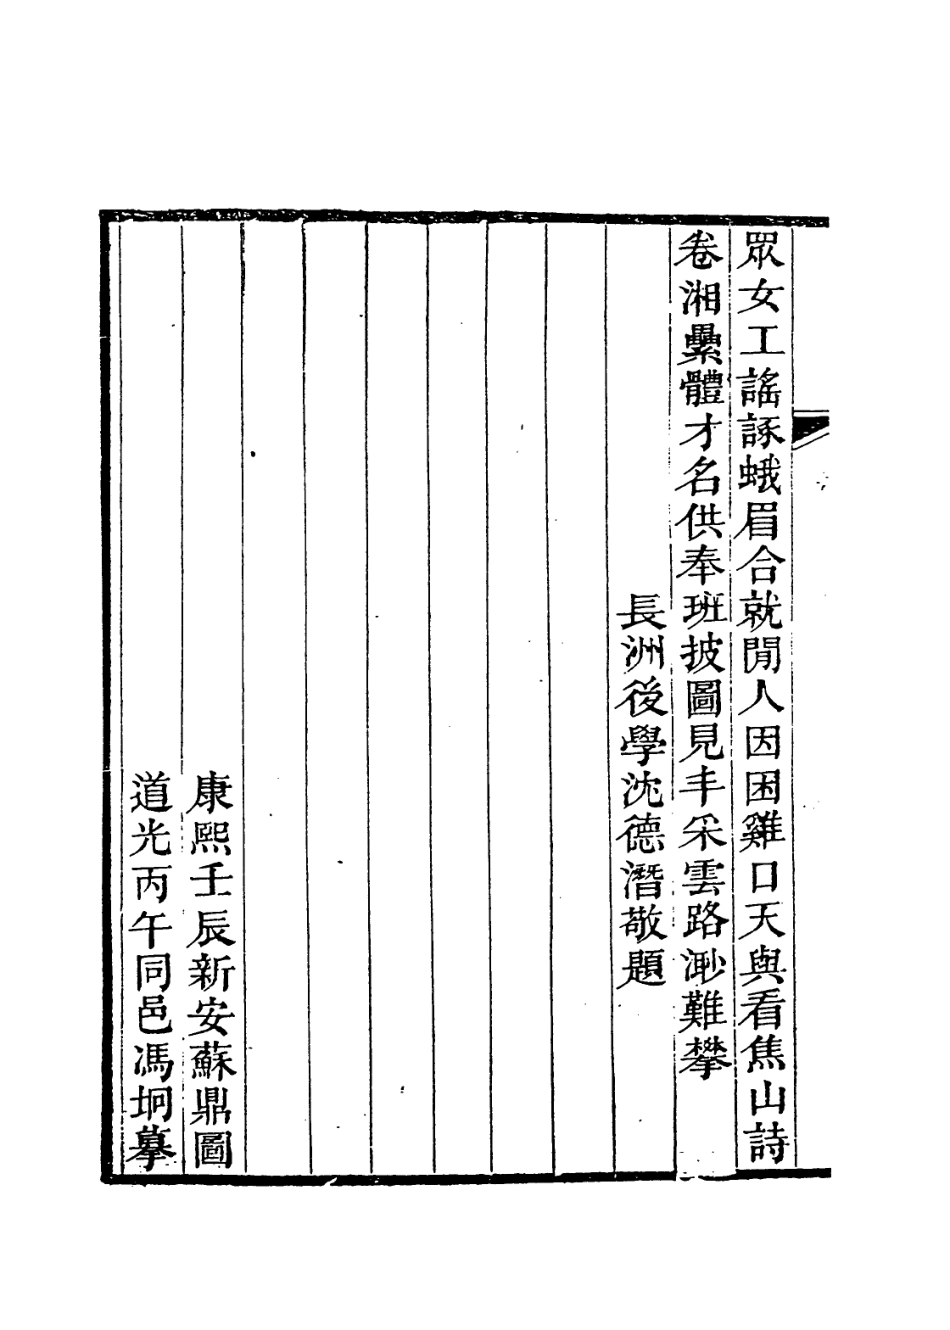 眾女工謠諑蛾眉合就閒人因困雞口天與看焦山詩
卷湘纍體才名供奉班披圖見丰采雲路渺難攀
長洲後學沈德潛敬題
康熙壬辰新安蘇鼎圖
道光丙午同邑馮坰摹